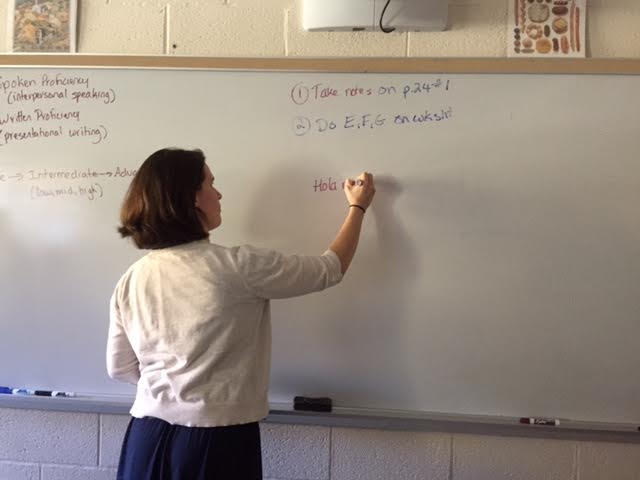 Spoken Proficiency
(interpersonal speaking)
Written Proficiency
(presentational writing)
Intermediate → Adva
(low, mid, high)
① Take notes on p.24 #1
② Do E, F, G on wksht
Hola